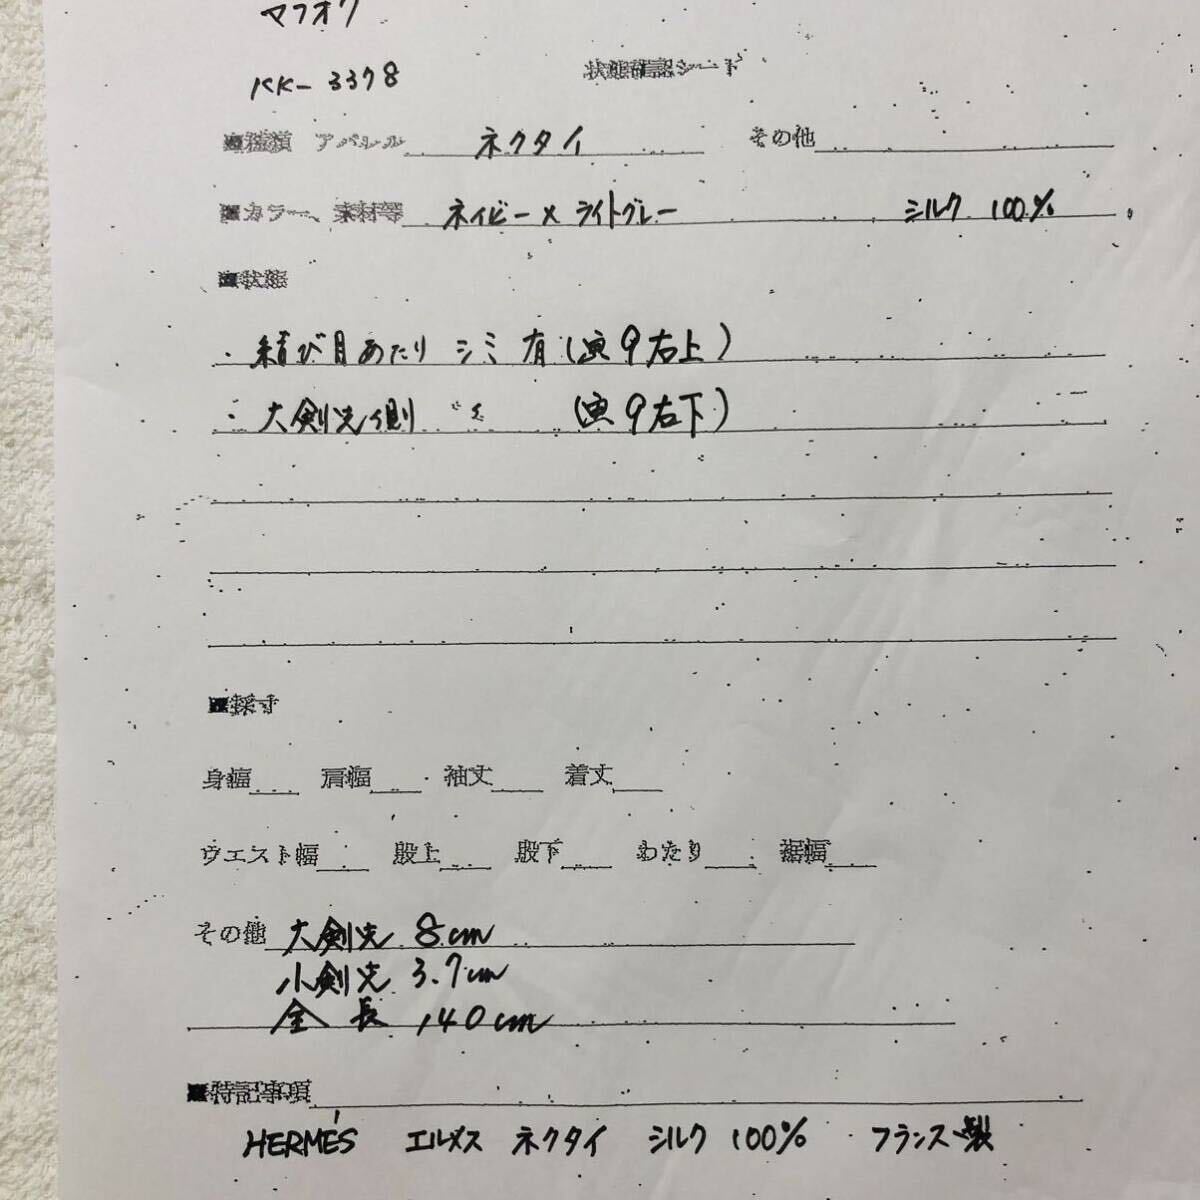 ヤフオク
KK-3378
状態確認シート
■種類 アパレル ネクタイ その他
■カラー、素材等 ネイビー×ライトグレー シルク 100%
■状態
・結び目あたり シミ 有(画9右上)
・大剣先側 〃 (画9右下)
■採寸
身幅 肩幅 袖丈 着丈
ウエスト幅 股上 股下 わたり 裾幅
その他 大剣先 8cm
小剣先 3.7cm
全長 140cm
■特記事項
HERMÈS エルメス ネクタイ シルク 100% フランス製